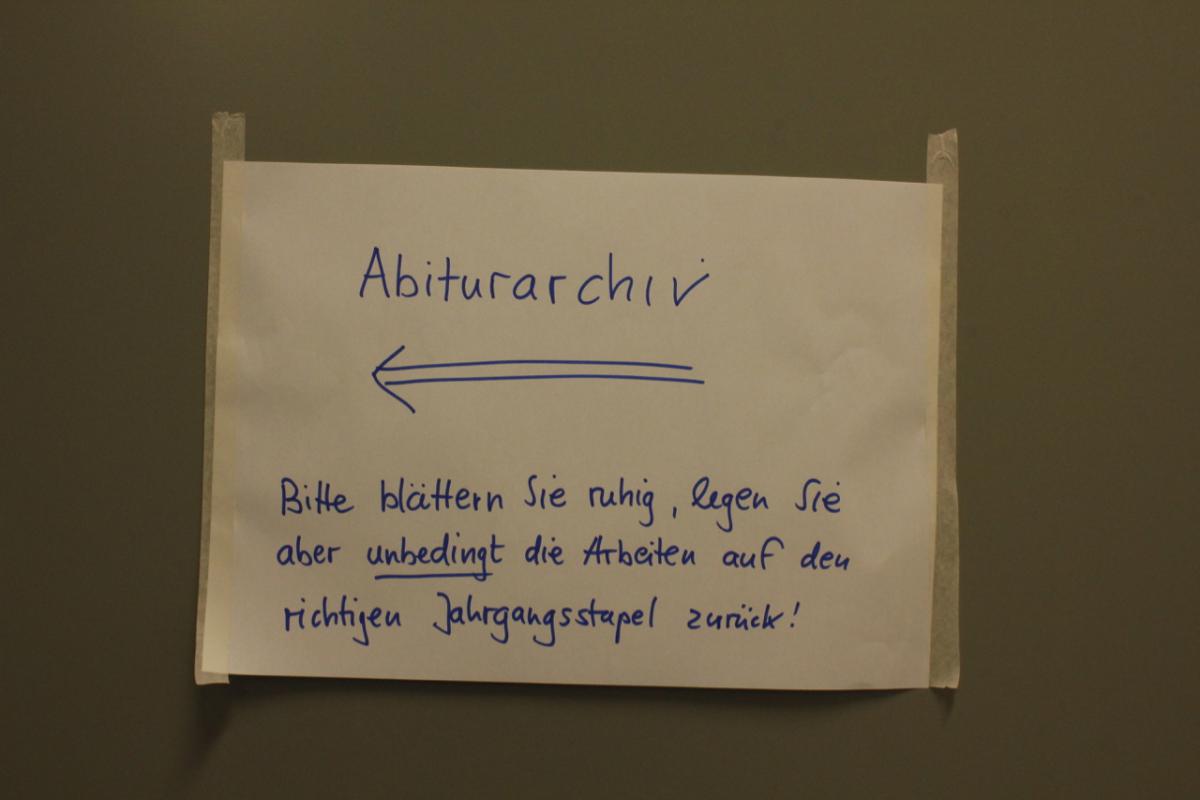 Abiturarchiv
Bitte blättern Sie ruhig, legen Sie
aber unbedingt die Arbeiten auf den
richtigen Jahrgangsstapel zurück!